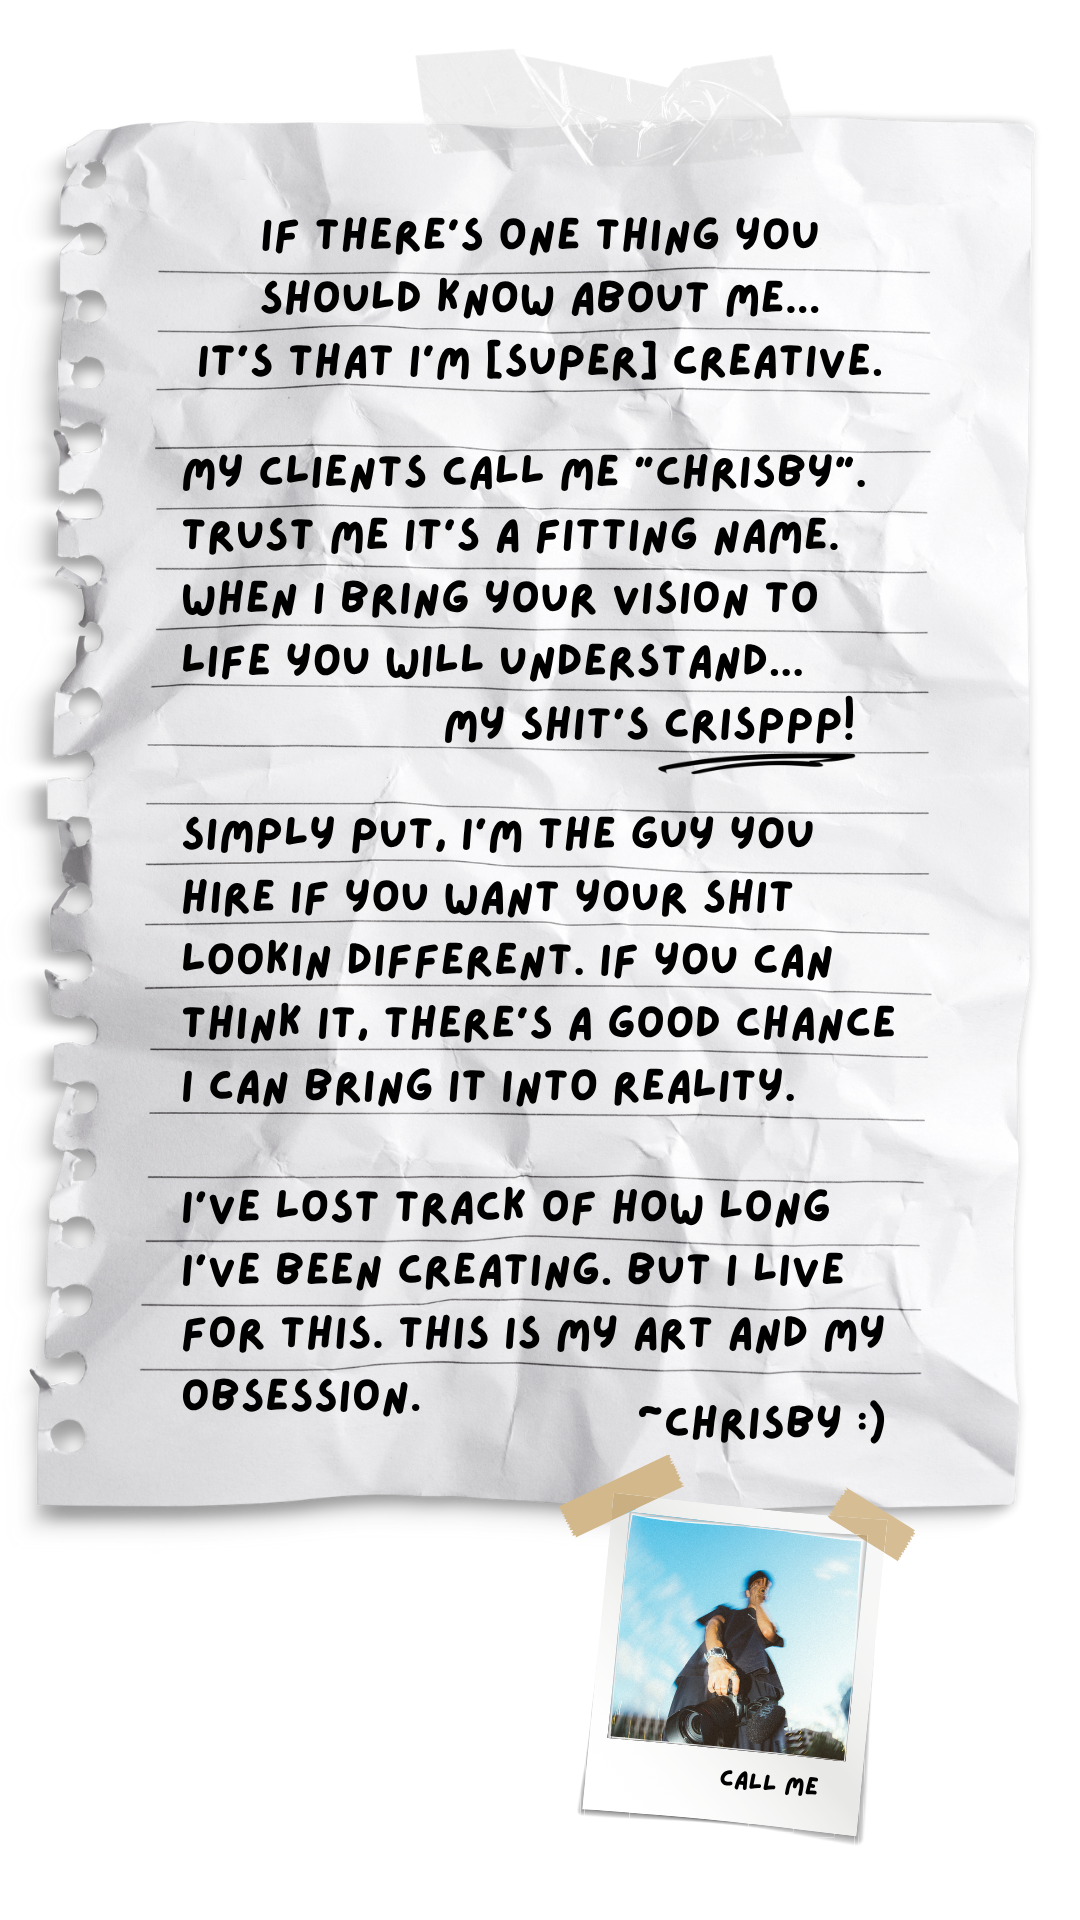 IF THERE'S ONE THING YOU
SHOULD KNOW ABOUT ME...
IT'S THAT I'M [SUPER] CREATIVE.
MY CLIENTS CALL ME "CHRISBY".
TRUST ME IT'S A FITTING NAME.
WHEN I BRING YOUR VISION TO
LIFE YOU WILL UNDERSTAND...
MY SHIT'S CRISPPP!
SIMPLY PUT, I'M THE GUY YOU
HIRE IF YOU WANT YOUR SHIT
LOOKIN DIFFERENT. IF YOU CAN
THINK IT, THERE'S A GOOD CHANCE
I CAN BRING IT INTO REALITY.
I'VE LOST TRACK OF HOW LONG
I'VE BEEN CREATING. BUT I LIVE
FOR THIS. THIS IS MY ART AND MY
OBSESSION.
~CHRISBY :)
CALL ME